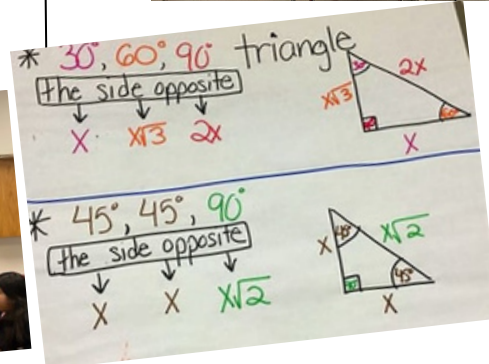 * 30°, 60°, 90° triangle
the side opposite
x x√3 2x
30°
2x
x√3
60°
x
* 45°, 45°, 90°
the side opposite
x x x√2
45°
x
x√2
45°
x